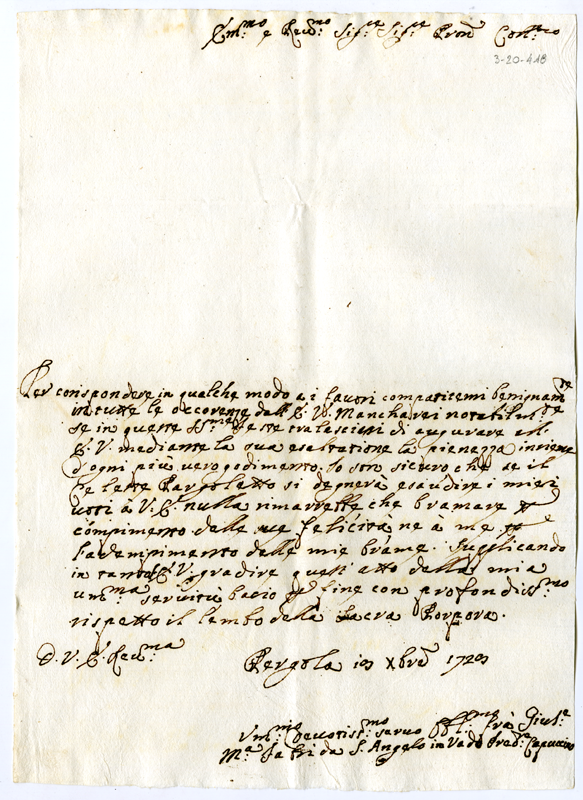 Em.mo e Rev.mo Sig.r Sig.r Pron Col.mo
3-20-418
Per corispondere in qualche modo a i favori compartitemi benignam.te
in tutte le occorenze dall'E.V. Mancharei notabilm.te
se in queste SS.me feste tralasciassi di augurare all'
E.V. mediante la sua esaltazione la pienezza insieme
d'ogni più vero godimento. Io son sicuro che se il
Celeste Pargoletto si degnerà esaudire i miei
voti à V.E. nulla rimarrebbe che bramare p
compimento delle sue felicità ne à me p
l'adempimento delle mie brame. Suplicando
in tanto l'E.V. gradire quest'atto della mia
um.ma servitù bacio p fine con profondiss.mo
rispetto il lembo della Sacra Porpora.
D.V.E. Rev.ma
Pergola 10 Xbre 1720
Um.mo Devotiss.mo servo Obbl.mo Frà
M.a da S. Angelo in Vado Pred.re Capuccino